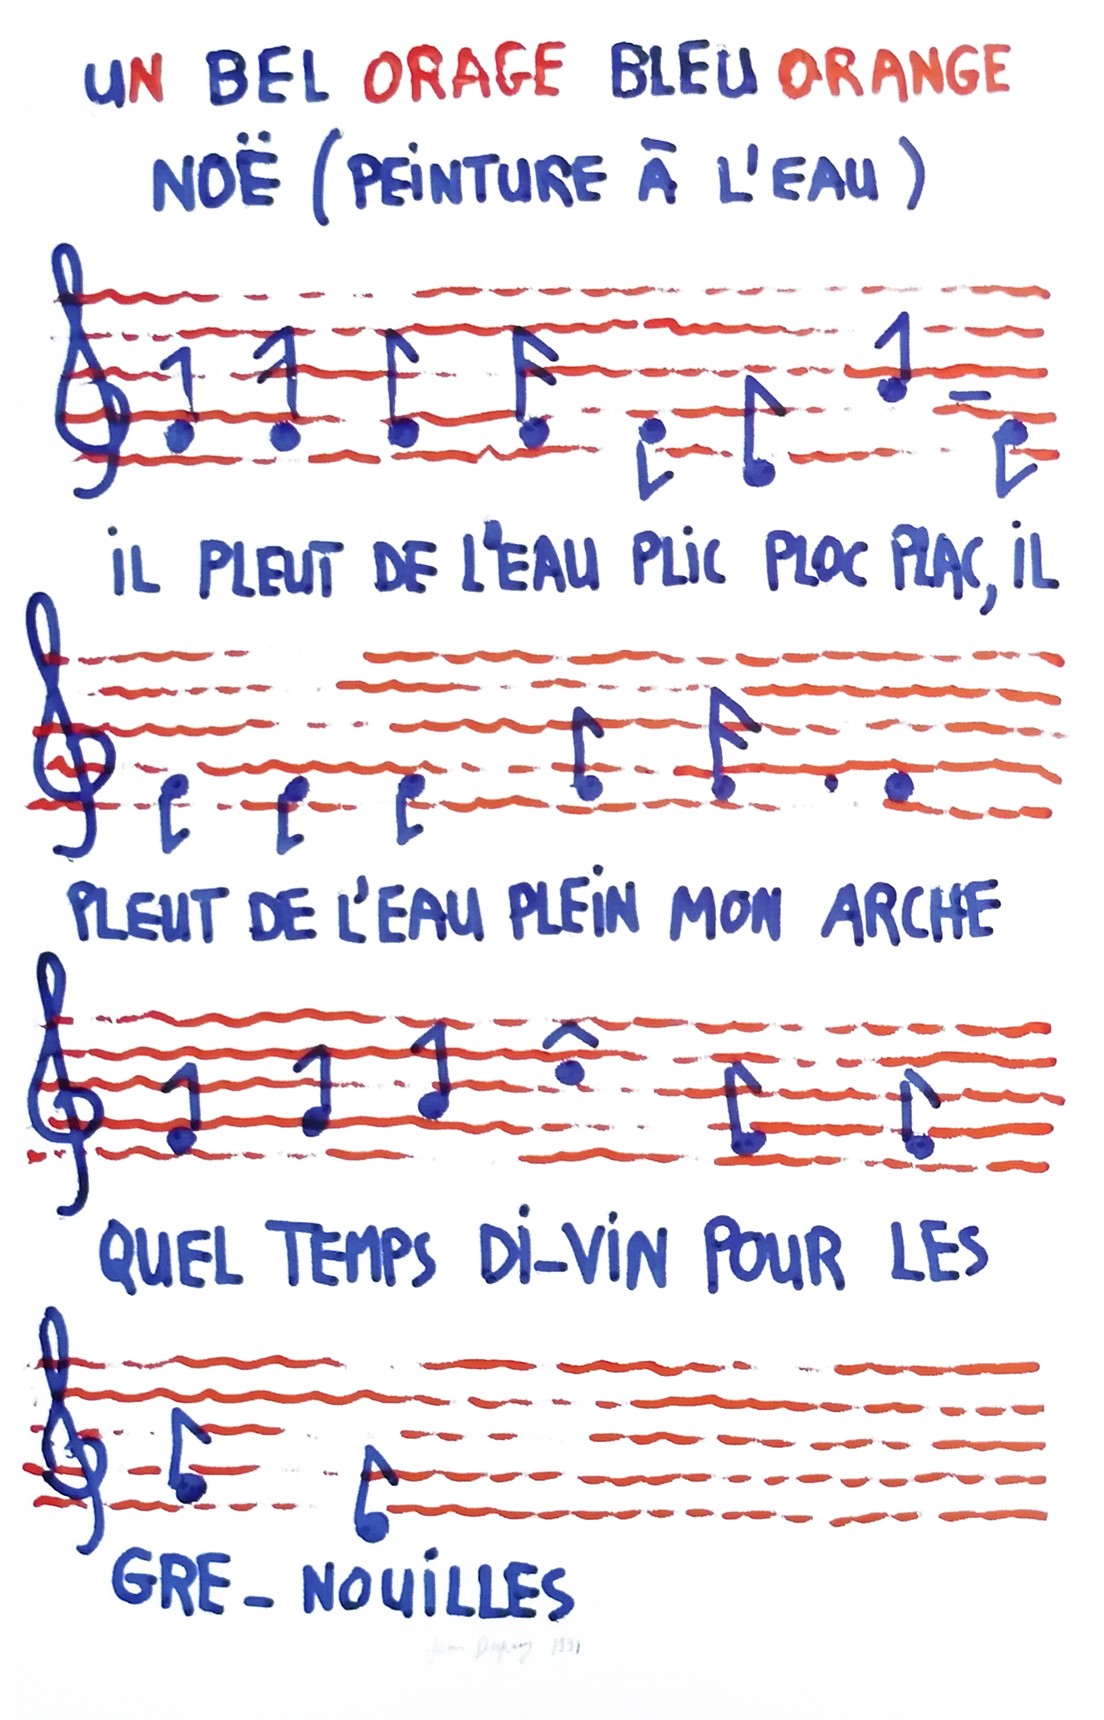 UN BEL ORAGE BLEU ORANGE
NOË (PEINTURE À L'EAU)
IL PLEUT DE L'EAU PLIC PLOC PLAC, IL
PLEUT DE L'EAU PLEIN MON ARCHE
QUEL TEMPS DI-VIN POUR LES
GRE-NOUILLES
Jean Dupuy 1991